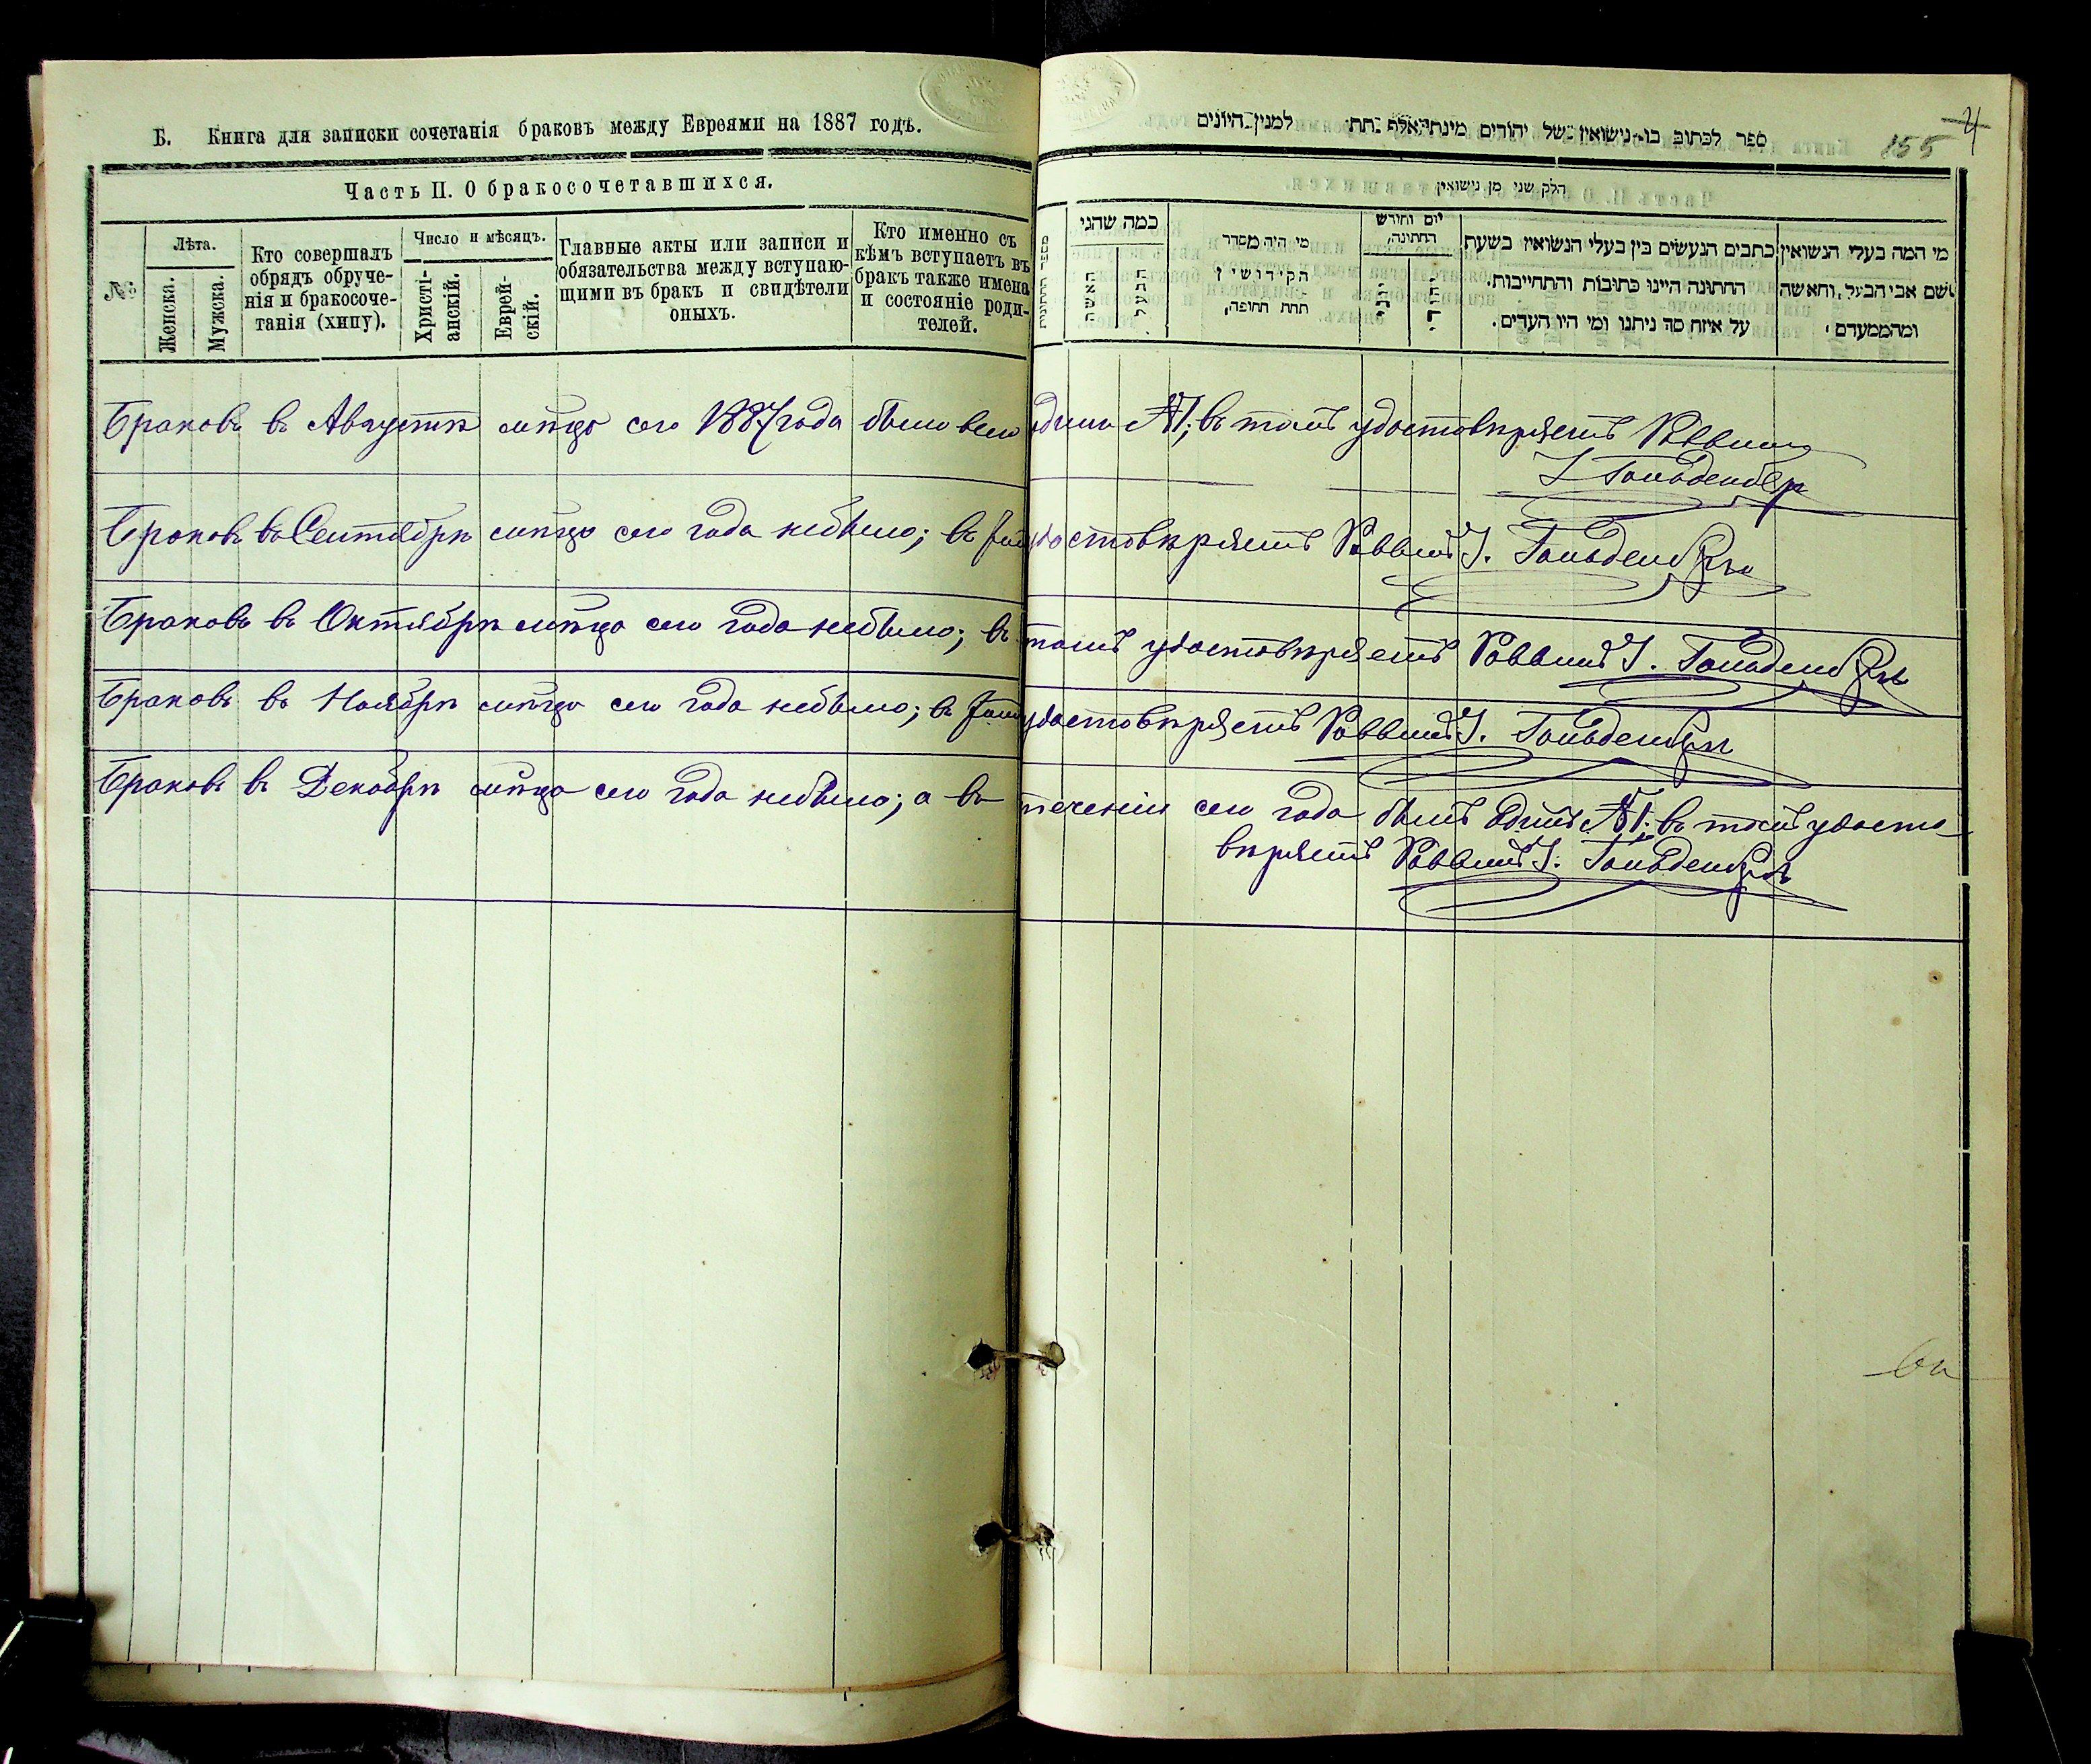 Б. Книга для записки сочетанія браковъ между Евреями на 1887 годъ.
Часть II. О бракосочетавшихся.
№
Лѣта.
Женска.
Мужска.
Кто совершалъ
обрядъ обруче-
нія и бракосоче-
танія (хипу).
Число и мѣсяцъ.
Христі-
анскій.
Еврей-
скій.
Главные акты или записи и
обязательства между вступаю-
щими въ бракъ и свидѣтели
оныхъ.
Кто именно съ
кѣмъ вступаетъ въ
бракъ также имена
и состояніе роди-
телей.
ספר לכתוב בו נישואין של יהודים מינתי אלף תת למנין היונים
155
4
חלק שני מן נישואין
מספר החתונות
כמה שהני
האשה
הבעל
מי היה מסדר
הקידושין
תחת החופה,
יום וחודש
החתונה,
כתבים הנעשים בין בעלי הנשואין בשעת
החתונה היינו כתובות והתחייבות.
על איזה סך ניתנו ומי היו העדים.
מי המה בעלי הנשואין
שם אבי הבעל, והאשה
ומהממעדם
Браковъ въ Августѣ мѣцѣ сего 1887 года было всего одинъ №1; въ томъ удостовѣряетъ Раввинъ
І Гольденбер
Браковъ въ Сентябрѣ мѣцѣ сего года небыло; въ удостовѣряетъ Раввинъ І. Гольденбергъ
Браковъ въ Октябрѣ мѣцѣ сего года небыло; въ томъ удостовѣряетъ Раввинъ І. Гольденбергъ
Браковъ въ Ноябрѣ мѣцѣ сего года небыло; въ удостовѣряетъ Раввинъ І. Гольденбергъ
Браковъ въ Декабрѣ мѣцѣ сего года небыло; а въ теченіи сего года былъ одинъ №1; въ томъ удосто-
вѣряетъ Раввинъ І. Гольденбергъ